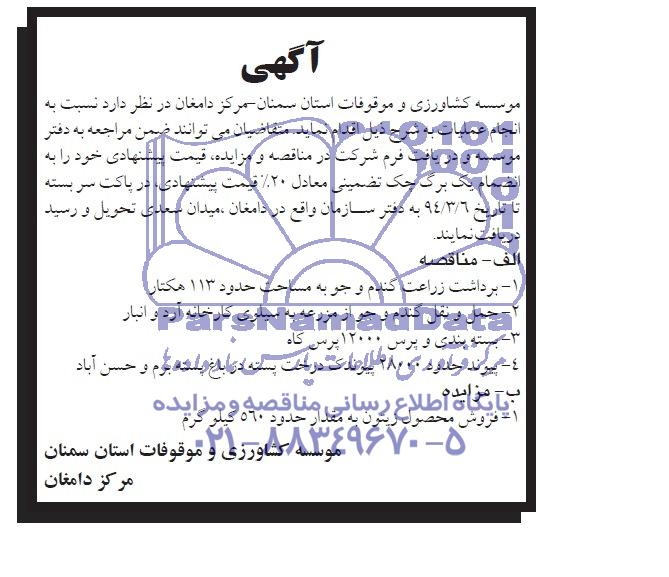 آگهی
موسسه کشاورزی و موقوفات استان سمنان-مرکز دامغان در نظر دارد نسبت به
انجام عملیات به شرح ذیل اقدام نماید. متقاضیان می توانند ضمن مراجعه به دفتر
موسسه و دریافت فرم شرکت در مناقصه و مزایده، قیمت پیشنهادی خود را به
انضمام یک برگ چک تضمینی معادل ۲۰٪ قیمت پیشنهادی، در پاکت سر بسته
تا تاریخ ۹۴/۳/۶ به دفتر ســازمان واقع در دامغان ،میدان سعدی تحویل و رسید
دریافت نمایند.
الف- مناقصه
۱- برداشت زراعت گندم و جو به مساحت حدود ۱۱۳ هکتار
۲- حمل و نقل گندم و جو از مزرعه به سیلوی کارخانه آرد و انبار
ParsNamadData
۳- بسته بندی و پرس ۱۲۰۰۰پرس کاه
۴- پیوند حدود ۲۸۰۰۰ پیوندک درخت پسته در باغ پسته بوم و حسن آباد
ب- مزایده
پایگاه اطلاع رسانی مناقصه و مزایده
۱- فروش محصول زیتون به مقدار حدود ۵۶۰ کیلو گرم
۰۲۱-۸۸۳۴۹۶۷۰-۵
موسسه کشاورزی و موقوفات استان سمنان
مرکز دامغان